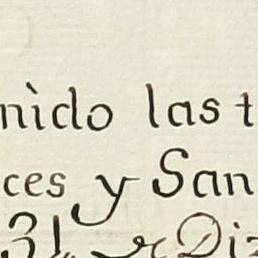 nido las t
ces y San
31 de Di